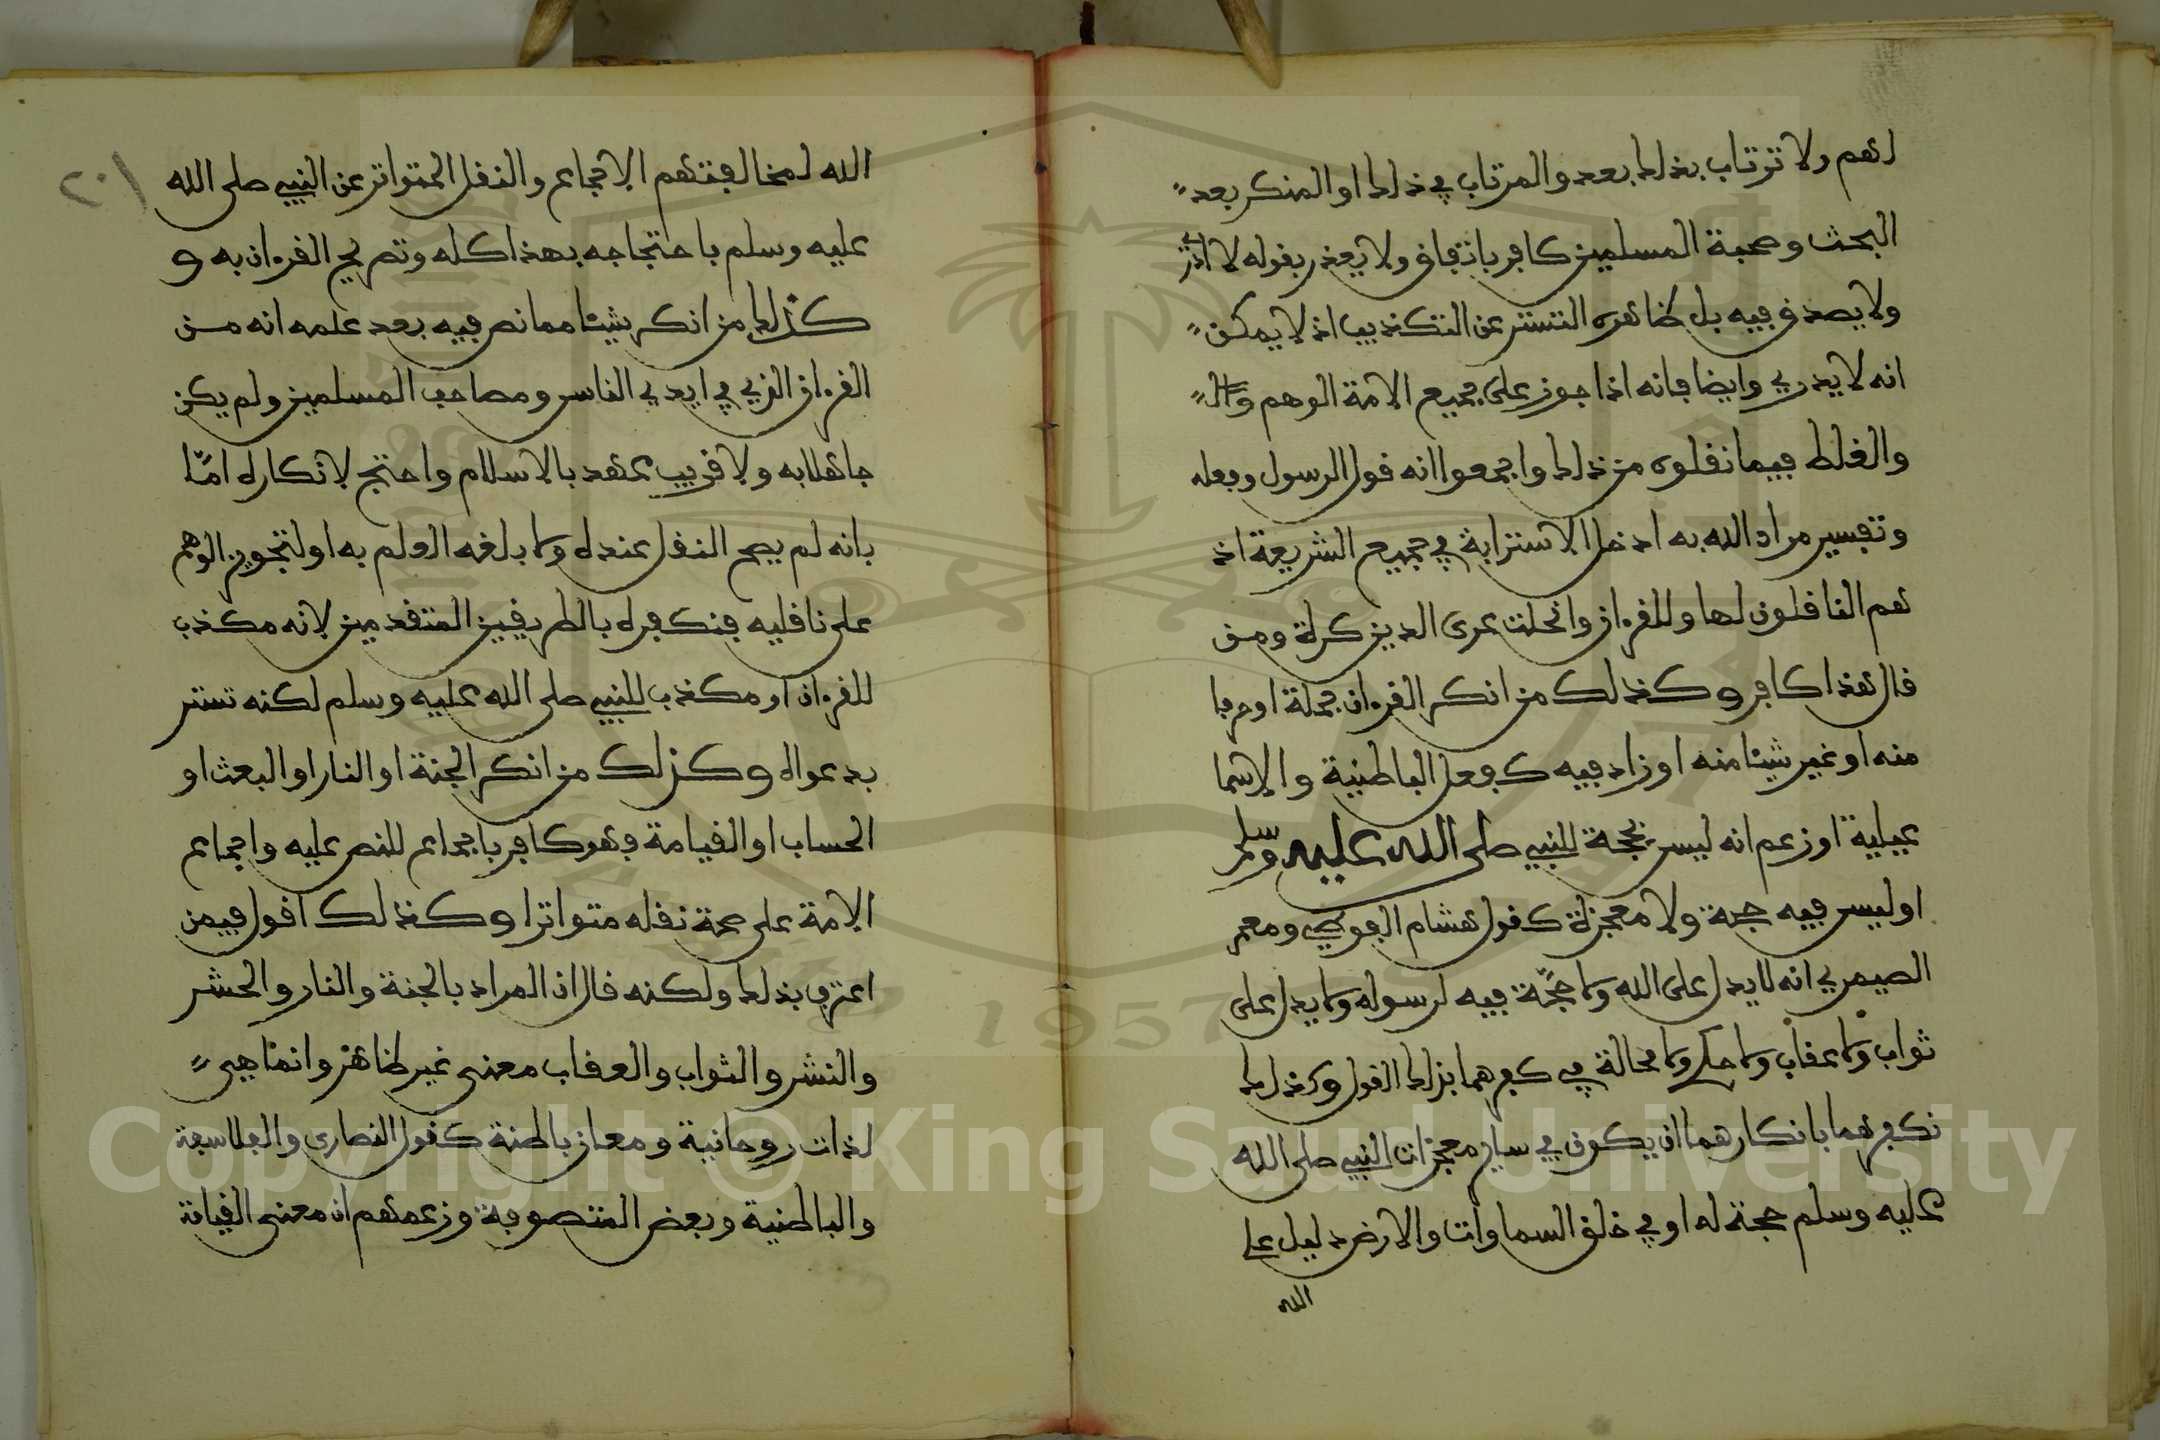 لهم ولا ترتاب بذلك بعد والمرتاب في ذلك او المنكر بعد
البحث وصحبة المسلمين كافر باتفاق ولا يعذر بقوله لا ادري
ولا يصدق فيه بل ظاهره التستر عن التكذيب اذ لا يمكن
انه لا يدري وايضا فانه اذا جوز على جميع الامة الوهم
والغلط فيما نقلوه من ذلك واجمعوا انه قول الرسول وفعله
وتفسير مراد الله به ادخل الاسترابة في جميع الشريعة اذ
هم الناقلون لها وللقرءان وانحلت عرى الدين كرة ومن
قال هذا كافر وكذلك من انكر القرءان جملة او حرفا
منه او غير شيئا منه او زاد فيه كفعل الباطنية والاسما
عيلية او زعم انه ليس بحجة للنبي صلى الله عليه وسلم
او ليس فيه حجة ولا معجزة كقول هشام الفوطي ومعمر
الصيمري انه لا يدل على الله ولا حجة فيه لرسوله ولا يدل على
ثواب ولا عقاب ولا حكم ولا محالة في كفرهما بذلك القول وكذلك
تكفرهما بانكارهما ان يكون في ساير معجزات النبي صلى الله
عليه وسلم حجة له او في خلق السماوات والارض دليل على
الله
٢٠١
الله لمخالفتهم الاجماع والنقل المتواتر عن النبي صلى الله
عليه وسلم باحتجاجه بهذا كله وتصريح القرءان به و
كذلك من انكر شيئا مما نص فيه بعد علمه انه من
القرءان الذي في ايدي الناس ومصاحف المسلمين ولم يكن
جاهلا به ولا قريب عهد بالاسلام واحتج لانكاره اما
بانه لم يصح النقل عنده ولا بلغه العلم به او لتجويز الوهم
على ناقليه فنكفره بالطريقين المتقدمين لانه مكذب
للقرءان او مكذب للنبي صلى الله عليه وسلم لكنه تستر
بدعواه وكذلك من انكر الجنة او النار او البعث او
الحساب او القيامة فهو كافر باجماع للنص عليه واجماع
الامة على صحة نقله متواترا وكذلك اقول فيمن
اعترف بذلك ولكنه قال ان المراد بالجنة والنار والحشر
والنشر والثواب والعقاب معنى غير ظاهر وانما هي
لذات روحانية ومعان باطنة كقول النصارى والفلاسفة
والباطنية وبعض المتصوفة وزعمهم ان معنى القيامة
Copyright © King Saud University
1957